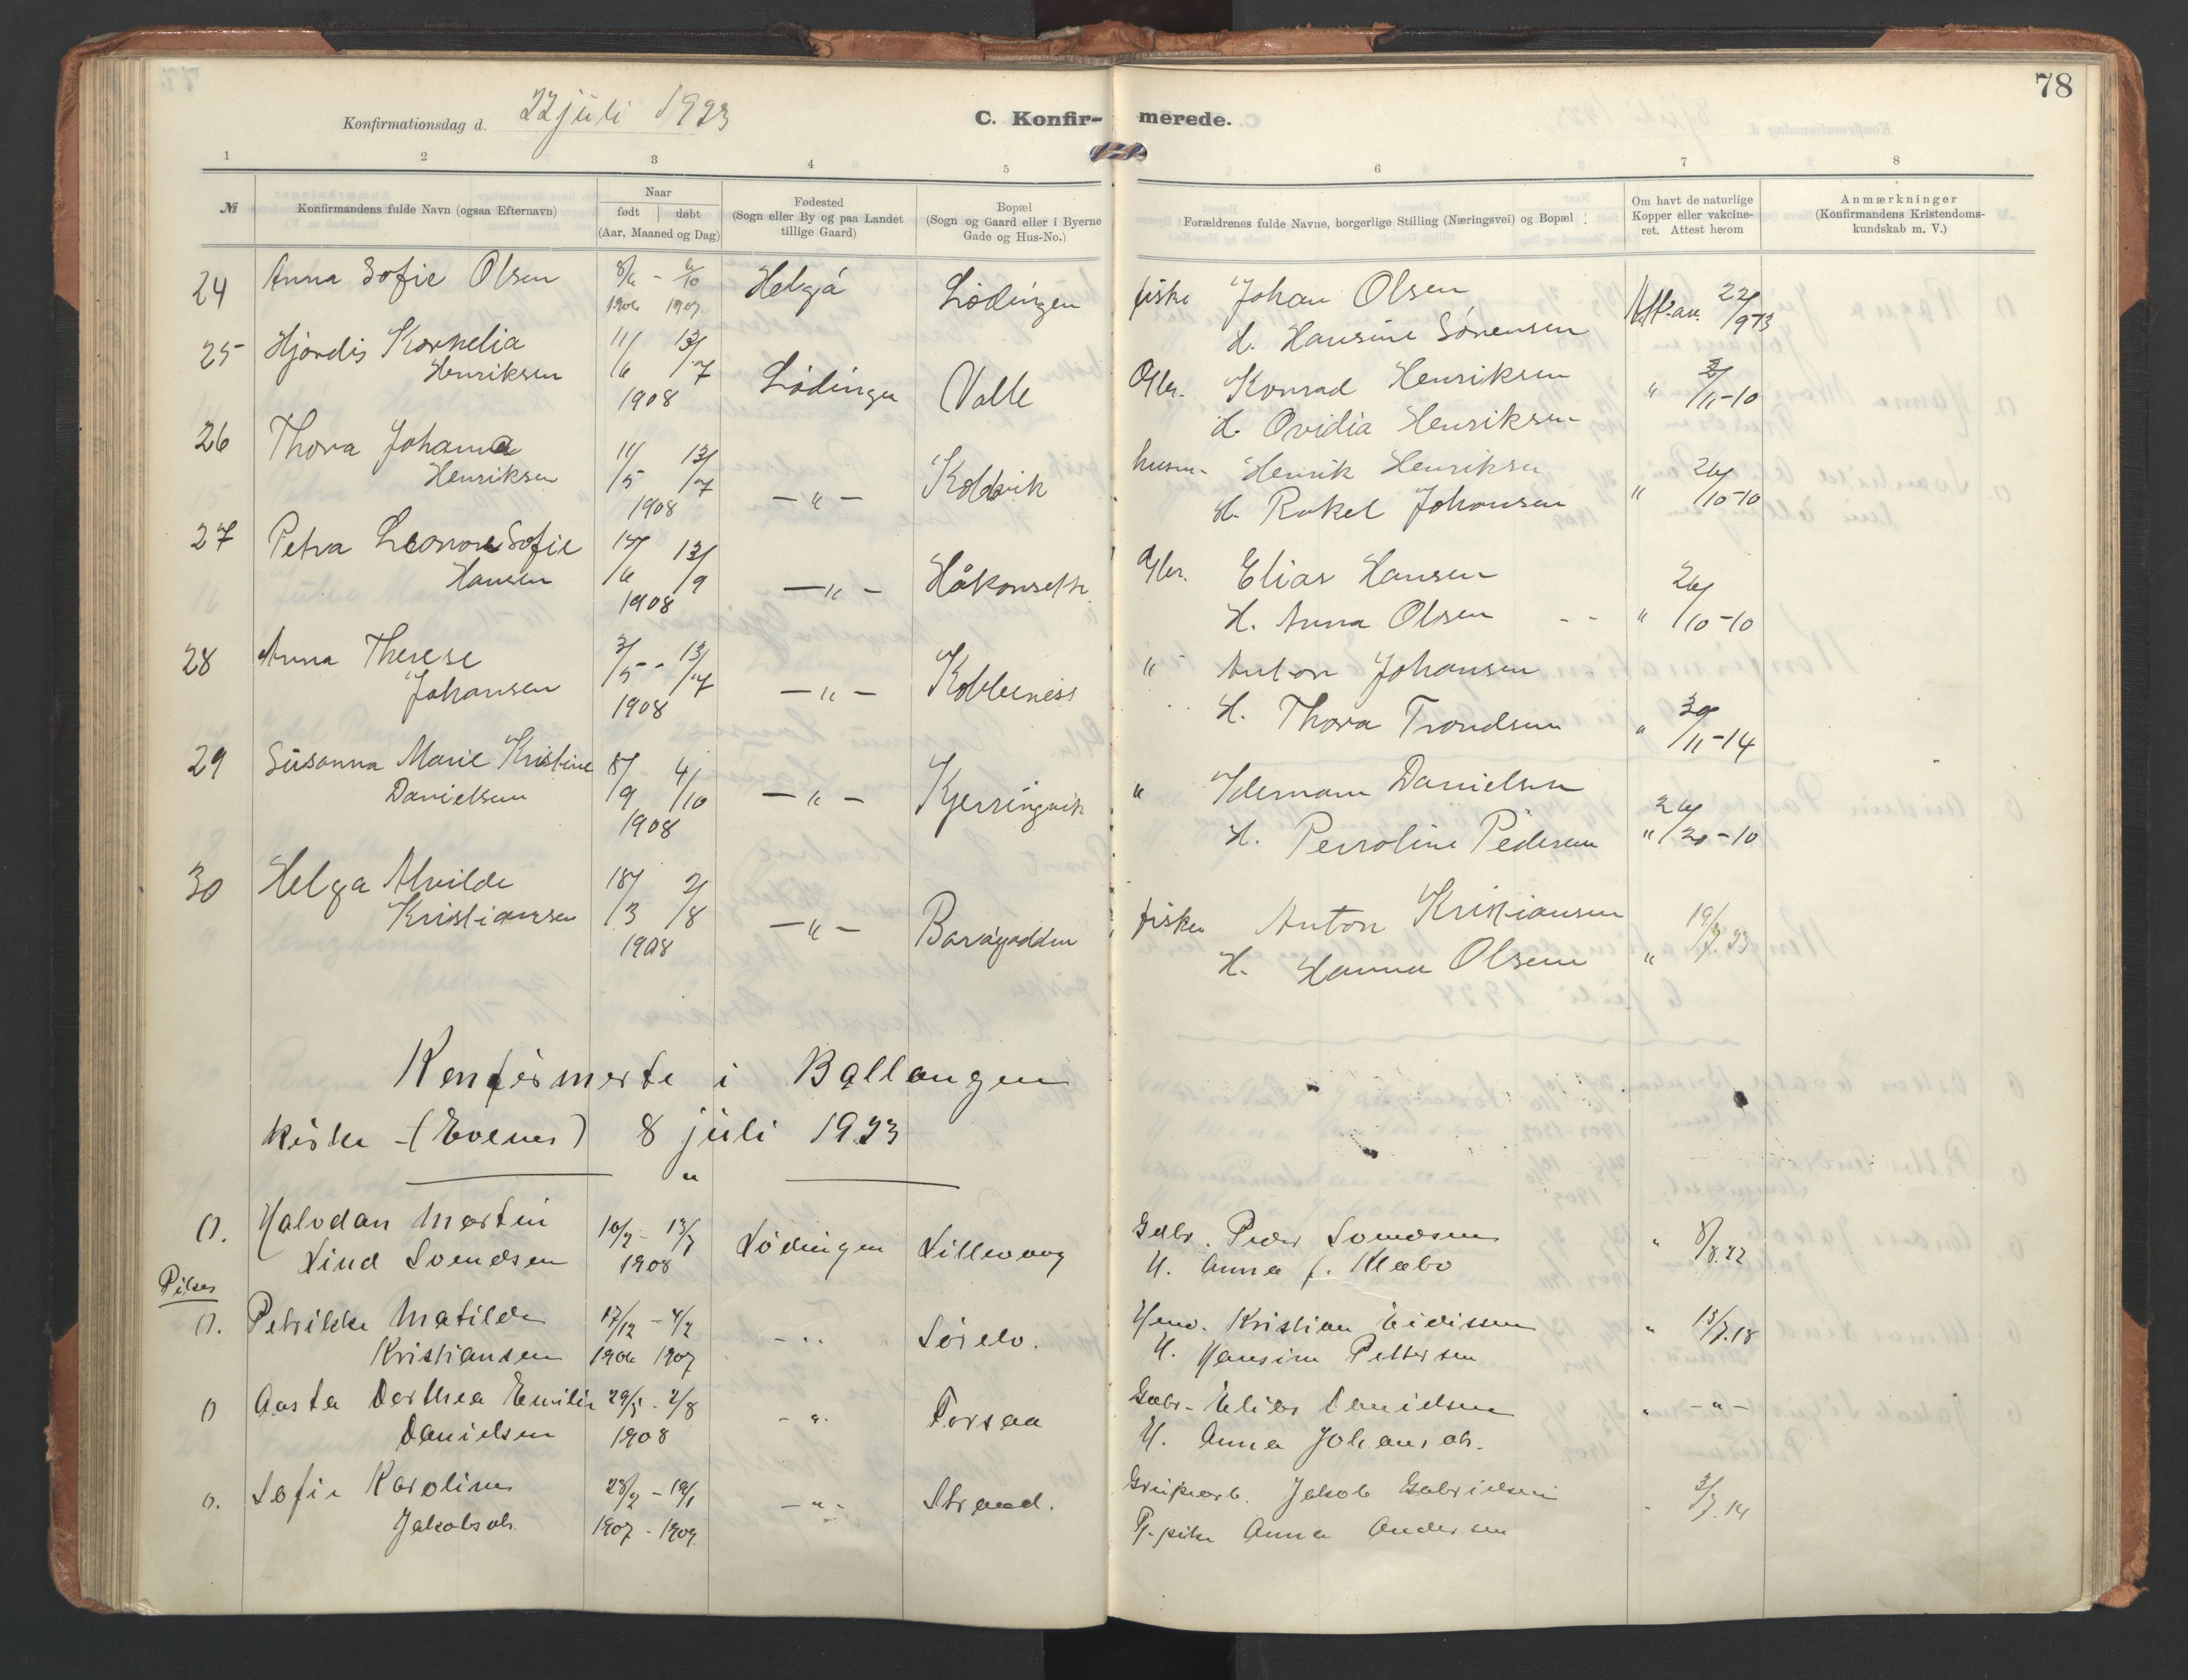 78
Konfirmationsdag d. 22 juli 1923
C. Konfir-
merede.
1 2 3 4 5 6 7 8
№
Konfirmandens fulde Navn (ogsaa Efternavn)
Naar
født | døbt
(Aar, Maaned og Dag)
Fødested
(Sogn eller By og paa Landet
tillige Gaard)
Bopæl
(Sogn og Gaard eller i Byerne
Gade og Hus-No.)
Forældrenes fulde Navne, borgerlige Stilling (Næringsvei) og Bopæl
Om havt de naturlige
Kopper eller vakcine-
ret. Attest herom
Anmærkninger
(Konfirmandens Kristendoms-
kundskab m. V.)
24 Anna Sofie Olsen 8/6 - 6/10 Helgå Lødingen fiske Johan Olsen 22/9 13
1906 1907. H. Hansine Sörensen
25 Hjördis Kornelia 11/6 13/7 Lödingen Valle Gbr. Konrad Henriksen " 3/11-10
Henriksen
1908 H. Ovidia Henriksen
26 Thora Johanna 11/5 13/7 — " — Koldvik husm. Henrik Henriksen
Henriksen " 26/10-10
1908 H. Rakel Johansen
27 Petra Leonore Sofie 17/6 13/9 — " — Gbr. Elias Hansen
Hansen
1908 H. Anna Olsen " 26/10-10
28 Anna Therese 3/5 - 13/7 — " — Kobbeness " Anton Johansen
Johansen
1908 H. Thora Trondsen " 30/11-14
29 Susanna Marie Kristine 8/9 4/10 — " — Kjerringvik " Danielsen
Danielsen
1908 H. Pedersen " 26/20-10
30 Helga Alvilde 18/3 2/8 — " — fisker Anton Kristiansen 19/7.23
Kristiansen
1908 H. Hanna Olsen "
Konfirmerte i Ballangen
kirke - (Evenes) 8 juli 1923
"
0. Halvdan Martin 10/2 - 13/7 Lödingen Gdbr. Peder Svendsen " 8/8.22
Lind Svendsen 1908 H. Anna f. Klæbo
Piker
0. Petrikke Matilde 17/12 - 4/2 - " Kristian Eidissen " 13/7.18
Kristiansen 1906 1907 H. Hansine Pettersen
0 Aasta Dorthea Emilie 29/5 - 2/8 - " - Forsaa Gdbr. Elias Danielsen " - " -
Danielsen 1908 H. Anna
0. Sofie Karoline 28/2 - 19/1 - " - Strand. Jakob Gabrielsen " 3/7.14
1907 - 1909. Anna Andersen